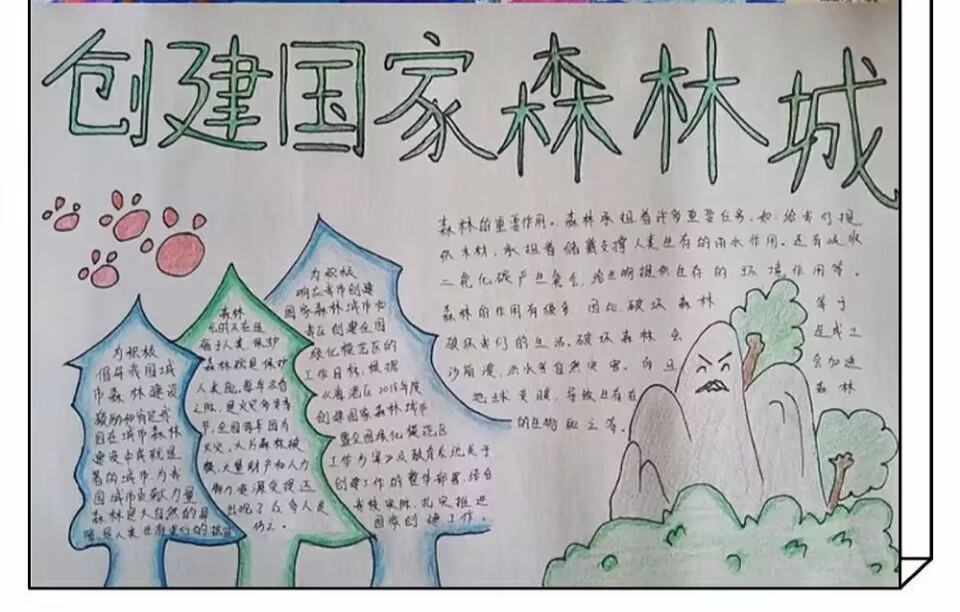 创建国家森林城
森林的重要作用。森林承担着许多重要任务，如：给我们提
供木材，承担着储藏支撑人类生存的雨水作用。还有吸收
二氧化碳产生氧气，给生物提供生存的环境作用等。
森林的作用有很多，因此，破坏森林 等于
破坏我们的生活。破坏森林会 造成土
沙崩漫、洪水等自然灾害。而且 会加速
地球变暖，导致生存在 森林
的生物缺乏等。
为积极
倡导我国城
市森林建设
激励和肯定我
国在城市森林
建设中成就显
著的城市 为我
国城市贡献力量
森林是大自然的
人类生存
森林
不仅在造
福于人类 保护
森林就是保护
人类 每年冬春
之际，是火灾多发季
节，全国每年因为
火灾，大片森林被
毁，大量财产和人力
物力资源受损 还
出现了众多人员
伤亡。
为积极
响应我市创建
国家森林城市和
省在创建全国
绿化模范区的
工作目标，根据
2018年度
创建国家森林城市
暨全国绿化模范区
工作方案以及教育系统关于
创建工作的整体部署，结合
我校实际，扎实推进
国家创建工作。